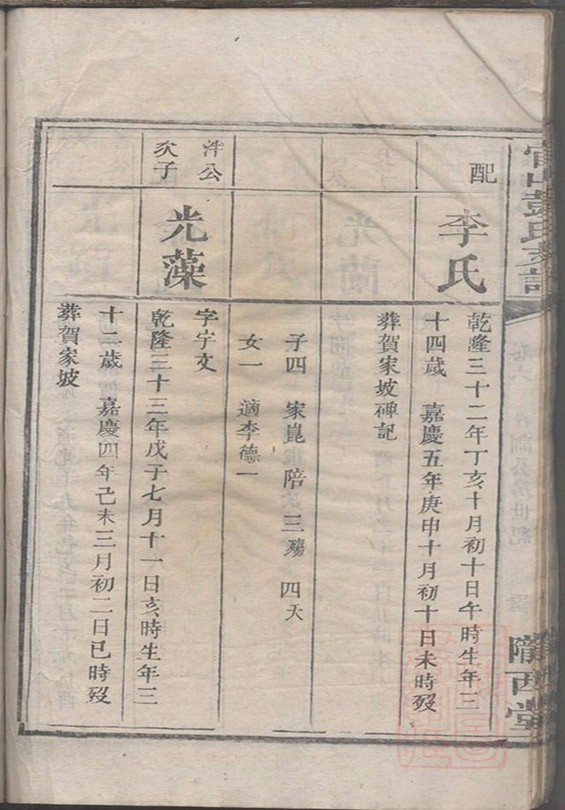 彭氏支譜
隴西堂
配
李氏
乾隆三十二年丁亥十月初十日午時生年三
十四歲 嘉慶五年庚申十月初十日未時歿
葬賀家坡碑記
子四 家崑 陪 三殤 四夭
女一 適李德一
泮公
次子
光藻
字宇文
乾隆三十三年戊子七月十一日亥時生年三
十二歲 嘉慶四年己未三月初二日巳時歿
葬賀家坡